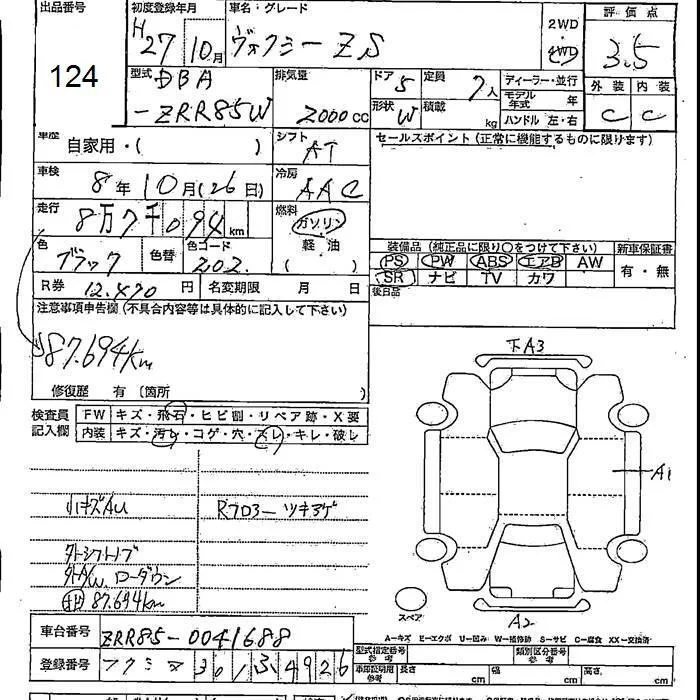 出品番号
124
初度登録年月
H27 10月
車名・グレード
ヴォクシー ZS
2WD
4WD
評価点
3.5
外装 内装
C C
型式 DBA
-ZRR85W
排気量
2000cc
ドア 5
形状 W
定員 7人
積載 kg
ディーラー・並行
モデル年式 年
ハンドル 左・右
車歴 自家用・( )
シフト
AT
セールスポイント(正常に機能するものに限ります)
車検
8年10月(26日)
冷房
AAC
走行
8万7千094km
燃料
ガソリン
軽・油
( )
色
ブラック
色替
色コード
202
装備品(純正品に限り○をつけて下さい)
新車保証書
PS PW ABS エアB AW
有・無
SR ナビ TV カワ
後日品
R券 12.470円 名変期限 月 日
注意事項申告欄(不具合内容等は具体的に記入して下さい)
87.694km
修復歴 有〔箇所 〕
検査員記入欄
FW キズ・飛石・ヒビ割・リペア跡・X要
内装 キズ・汚れ・コゲ・穴・スレ・キレ・破レ
下A3
A1
A2
小キズAU
Rフロアーツキアゲ
外シフトノブ
外A/W ローダウン
87.694km
スペア
A-キズ E-エクボ U-凹み W-補修跡 S-サビ C-腐食 XX-交換済
車台番号 ZRR85-0041688
型式指定番号 参考
類別区分番号 参考
登録番号
301 4926
車庫証明用 参考 長さ cm 幅 cm 高さ cm